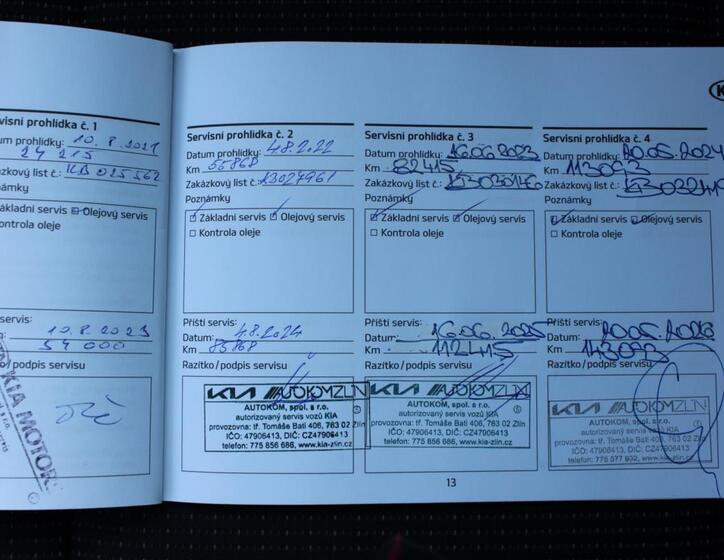 visní prohlídka č. 1
um prohlídky: 10. 8. 2021
24 215
kázkový list č.: KB 025 562
námky
ákladní servis Olejový servis
ontrola oleje
servis:
10. 8. 2023
54 000
o/podpis servisu
KIA MOTOR
Servisní prohlídka č. 2
Datum prohlídky: 4.8.2022
Km 55868
Zakázkový list č.: K3027961
Poznámky
Základní servis Olejový servis
Kontrola oleje
Příští servis:
Datum: 4.8.2024
Km 85868
Razítko / podpis servisu
KIA AUTOKOMZLIN
AUTOKOM, spol. s r.o.
autorizovaný servis vozů KIA
provozovna: tř. Tomáše Bati 406, 763 02 Zlín
IČO: 47906413, DIČ: CZ47906413
telefon: 775 856 686, www.kia-zlin.cz
Servisní prohlídka č. 3
Datum prohlídky: 16.06.2023
Km 82415
Zakázkový list č.: K3030176
Poznámky
Základní servis Olejový servis
Kontrola oleje
Příští servis:
Datum: 16.06.2025
Km 112415
Razítko / podpis servisu
KIA AUTOKOMZLIN
AUTOKOM, spol. s r.o.
autorizovaný servis vozů KIA
provozovna: tř. Tomáše Bati 406, 763 02 Zlín
IČO: 47906413, DIČ: CZ47906413
telefon: 775 856 686, www.kia-zlin.cz
Servisní prohlídka č. 4
Datum prohlídky: 20.05.2024
Km 113093
Zakázkový list č.:
Poznámky
Základní servis Olejový servis
Kontrola oleje
Příští servis:
Datum: 20.05.2026
Km 143093
Razítko / podpis servisu
KIA AUTOKOMZLIN
AUTOKOM, spol. s r.o.
autorizovaný servis vozů KIA
provozovna: tř. Tomáše Bati 406, 763 02 Zlín
IČO: 47906413, DIČ: CZ47906413
telefon: 775 577 932, www.kia-zlin.cz
13